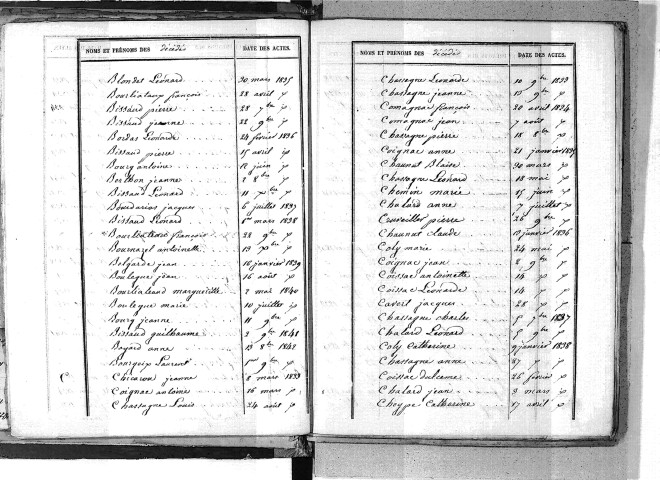 NOMS ET PRÉNOMS DES décédés DATE DES ACTES.
Blondet Léonard 30 mars 1835
Bourlialaux françois 28 avril p
Bissard pierre 28 7bre p
Bissaud jeanne 22 9bre p
Bordas Léonarde 24 février 1836
Bissaud pierre 15 avril p
Bourg antoine 12 juin p
Berthon jeanne 2 8bre p
Bissaud Léonard 11 xbre p
Boudarias jacques 6 juillet 1837
Bissaud Léonard 1er mars 1838
françois 28 9bre p
Bournazel antoinette 13 xbre p
Belgarde jean 16 janvier 1839
Boulegue jean 16 août p
marguerite 2 mai 1840
Boulegue marie 10 juillet p
Bourg jeanne 11 9bre p
Bissaud guilhaume 3 9bre 1841
Bayard anne 13 8bre 1842
Bourgeix Laurent 1er 9bre p
C Chicarou jeanne 8 mars 1833
Coignac antoine 16 mars p
Chassagne Louis 24 août p
NOMS ET PRÉNOMS DES décédés DATE DES ACTES.
Chassagne Léonarde 10 9bre 1833
Chassagne jeanne 13 9bre p
Comagnac françois 20 avril 1834
Comagnac jean 7 août p
Chassagne pierre 18 8bre p
Coignac anne 21 janvier 1835
Chaunut Blaise 30 mars p
Chassagne Léonard 18 mai p
Chemin marie 15 juin p
Chalard anne 7 juillet p
pierre 26 9bre p
Chaunut claude 10 janvier 1836
Coly marie 24 mai p
Coignac jean 8 9bre p
Coissac antoinette 14 p p
Coissac Léonarde 14 p
Cavert jacques 28 p p
Chassagne charles 5 9bre 1837
Chalard Léonard 5 9bre p
Coly Catherine 9 janvier 1838
Chassagne anne 27 p p
Coissac dulcème 26 février p
Chalard jean 3 mars p
Choype Catherine 27 avril p